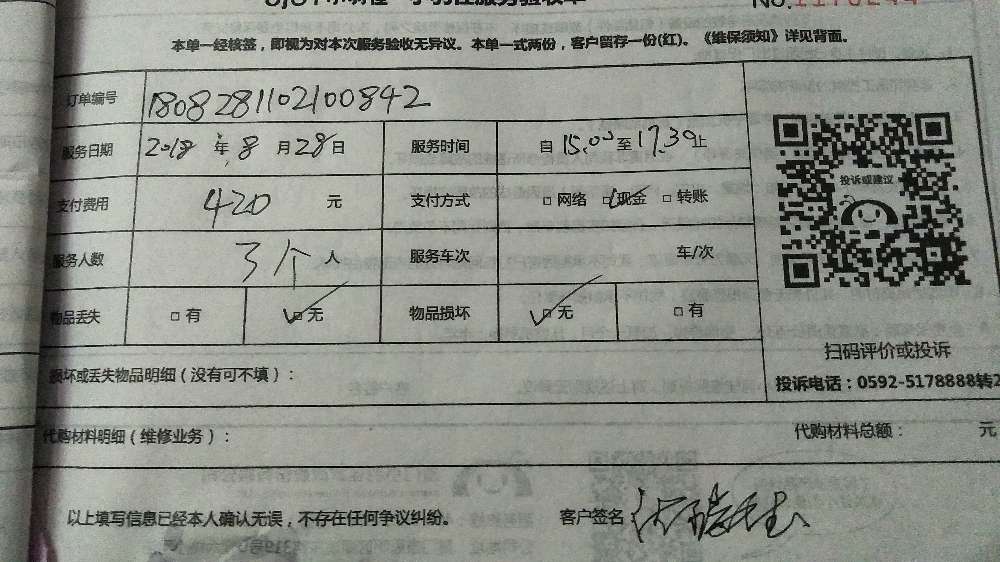 本单一经核签，即视为对本次服务验收无异议。本单一式两份，客户留存一份(红)。《维保须知》详见背面。
订单编号 1808281102100842
服务日期 2018 年 8 月 28 日 服务时间 自 15.00 至 17.30 止
投诉或建议
支付费用 420 元 支付方式 □ 网络 □ 现金 □ 转账
服务人数 3个 人 服务车次 车/次
物品丢失 □ 有 □ 无 物品损坏 □ 无 □ 有
扫码评价或投诉
损坏或丢失物品明细（没有可不填）：
投诉电话：0592-5178888转2
代购材料明细（维修业务）： 代购材料总额： 元
以上填写信息已经本人确认无误，不存在任何争议纠纷。 客户签名